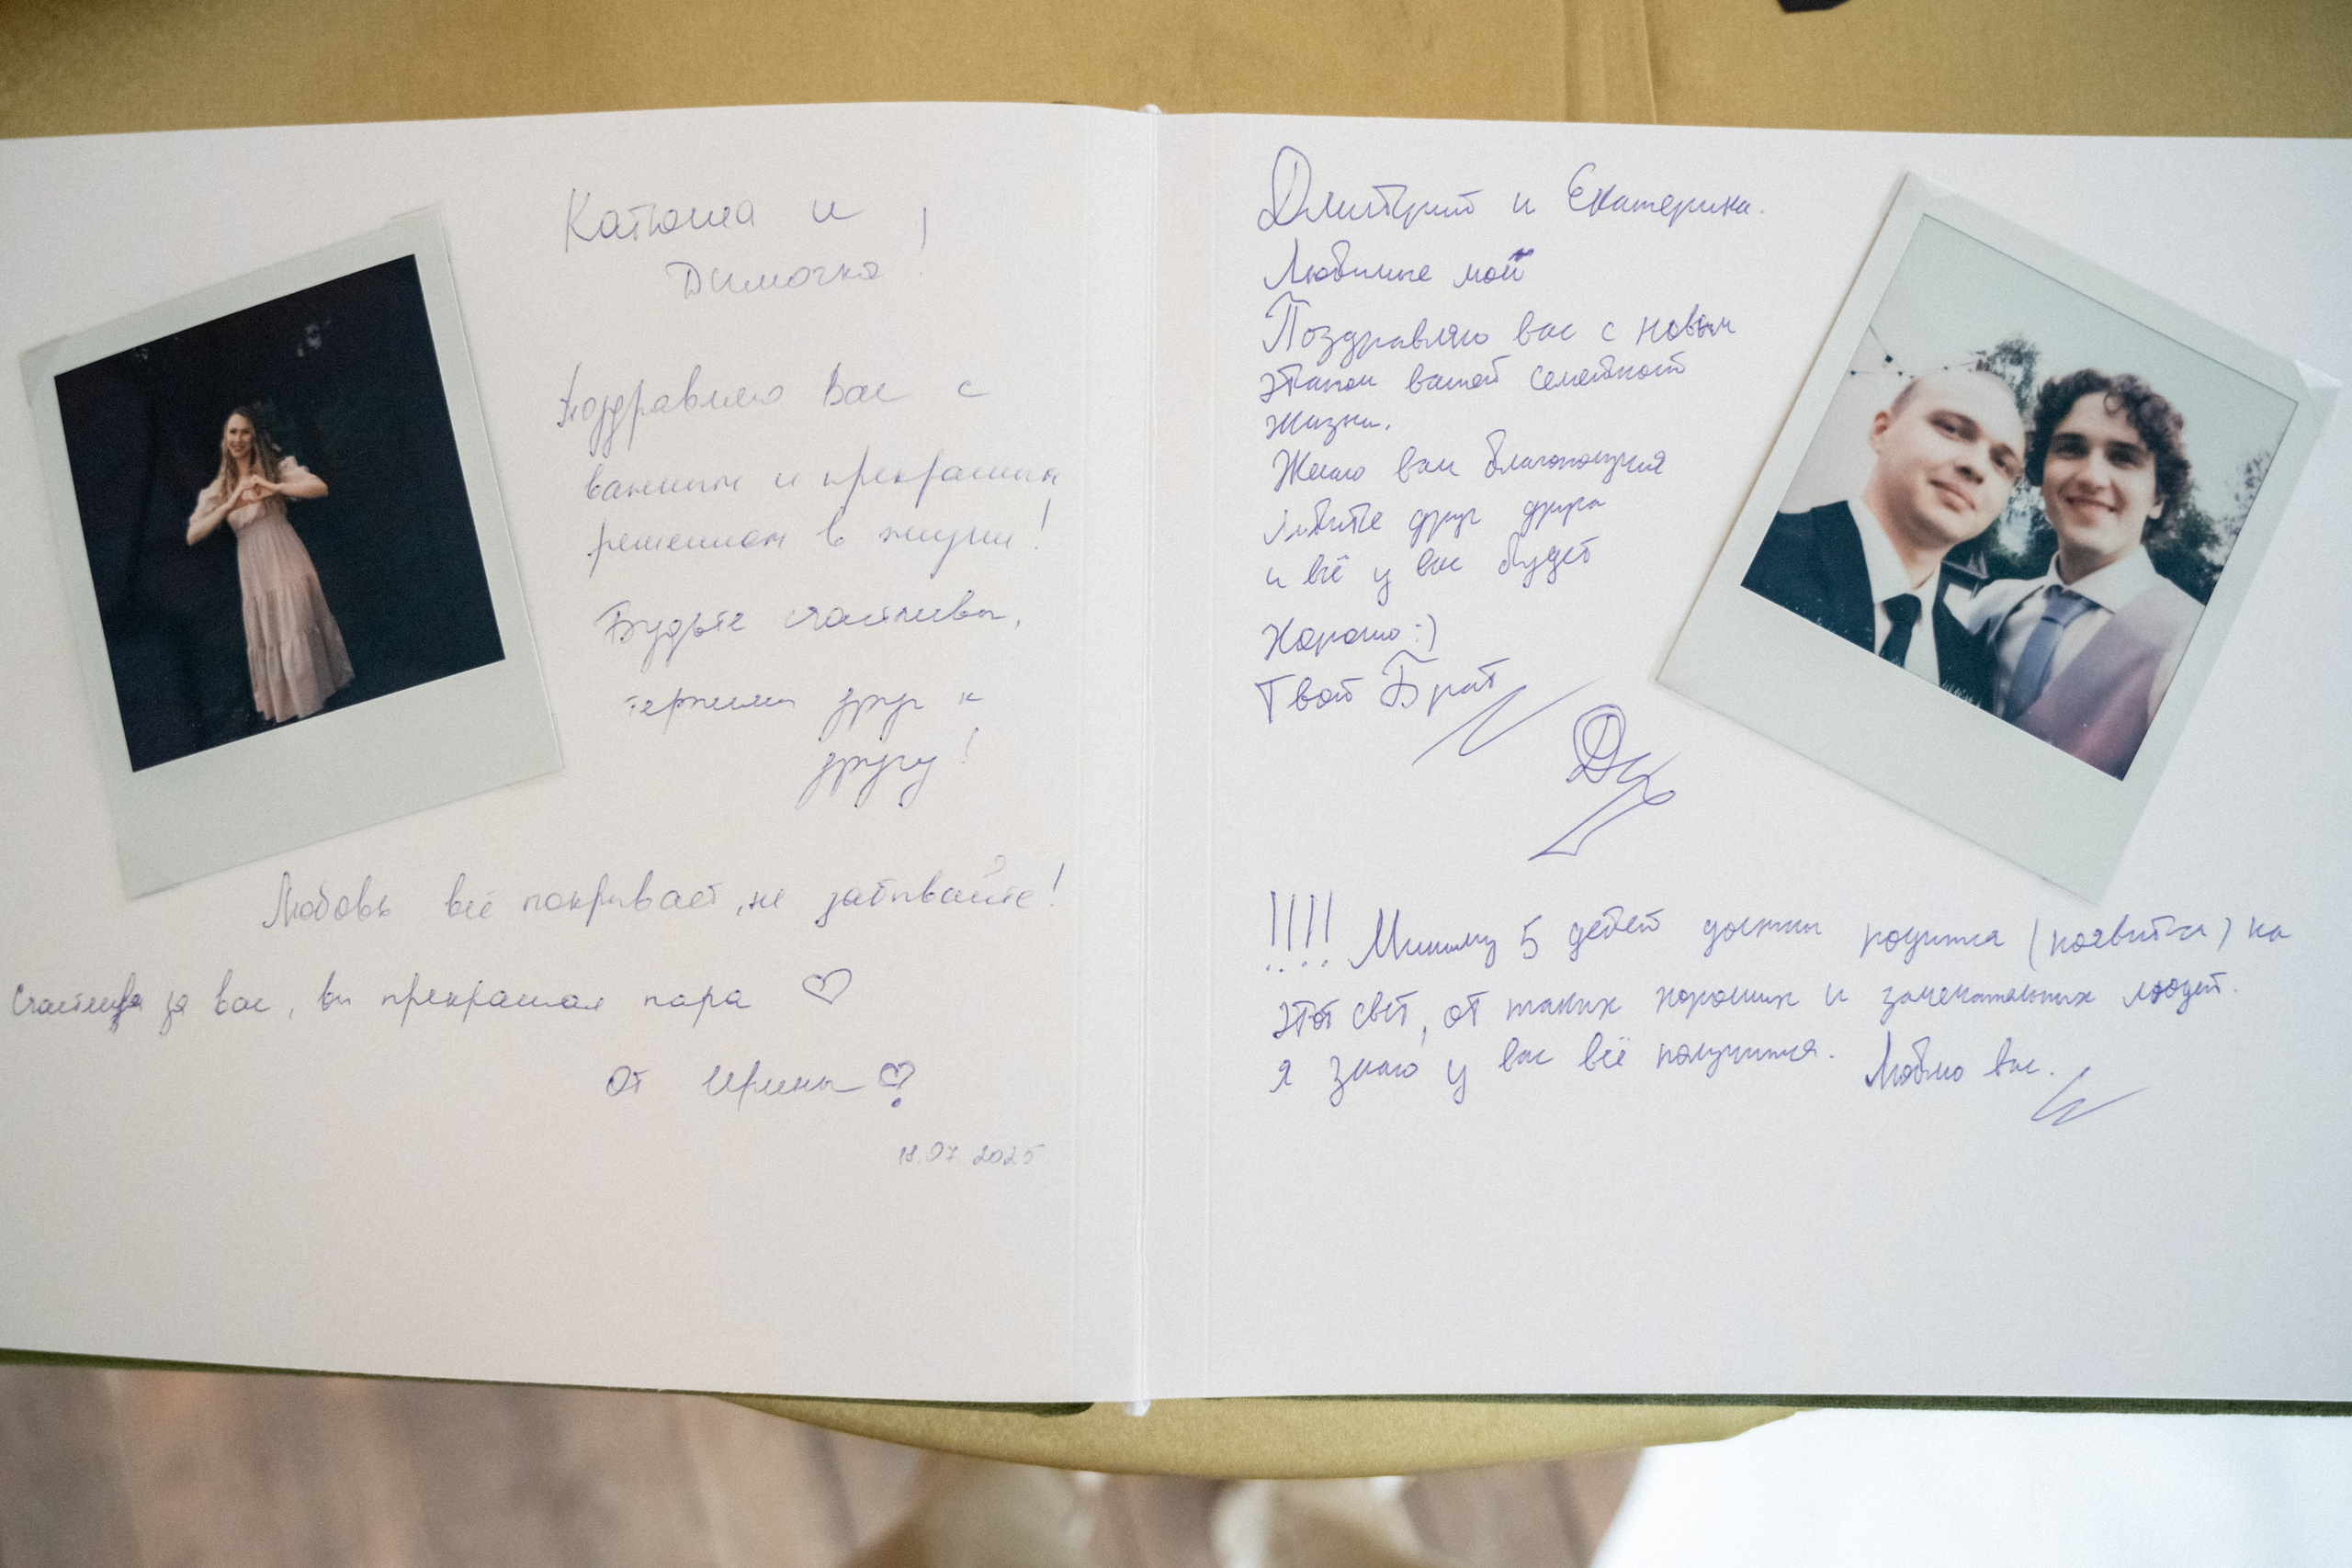 Катюша и
Димочка!
Поздравляю Вас с
важным и прекрасным
решением в жизни!
Будьте счастливы,
терпимы друг к
другу!
Любовь всё покрывает, не забывайте!
Счастлива за вас, вы прекрасная пара
От Ирины
18.07.2025
Дмитрий и Екатерина.
Любимые мой
Поздравляю вас с новым
этапом вашей семейной
жизни.
Желаю вам благополучия
любите друг друга
и всё у вас будет
Хорошо :)
Твой Брат
!!!! Минимум 5 детей должны родится (появится) на
этот свет, от таких хороших и замечательных людей.
я знаю у вас всё получится. Люблю вас.